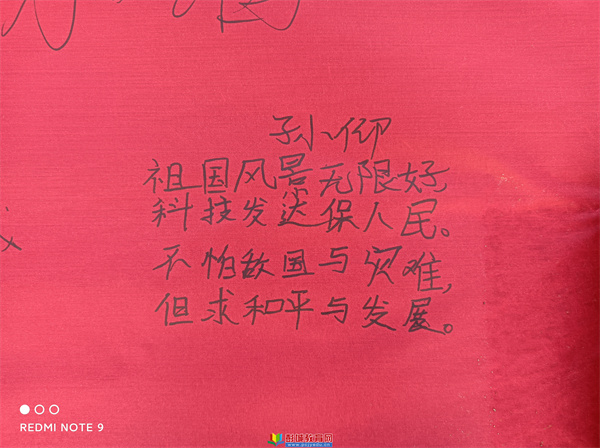 孙小仰
祖国风景无限好
科技发达保人民。
不怕敌国与灾难,
但求和平与发展。
REDMI NOTE 9
彭城教育网